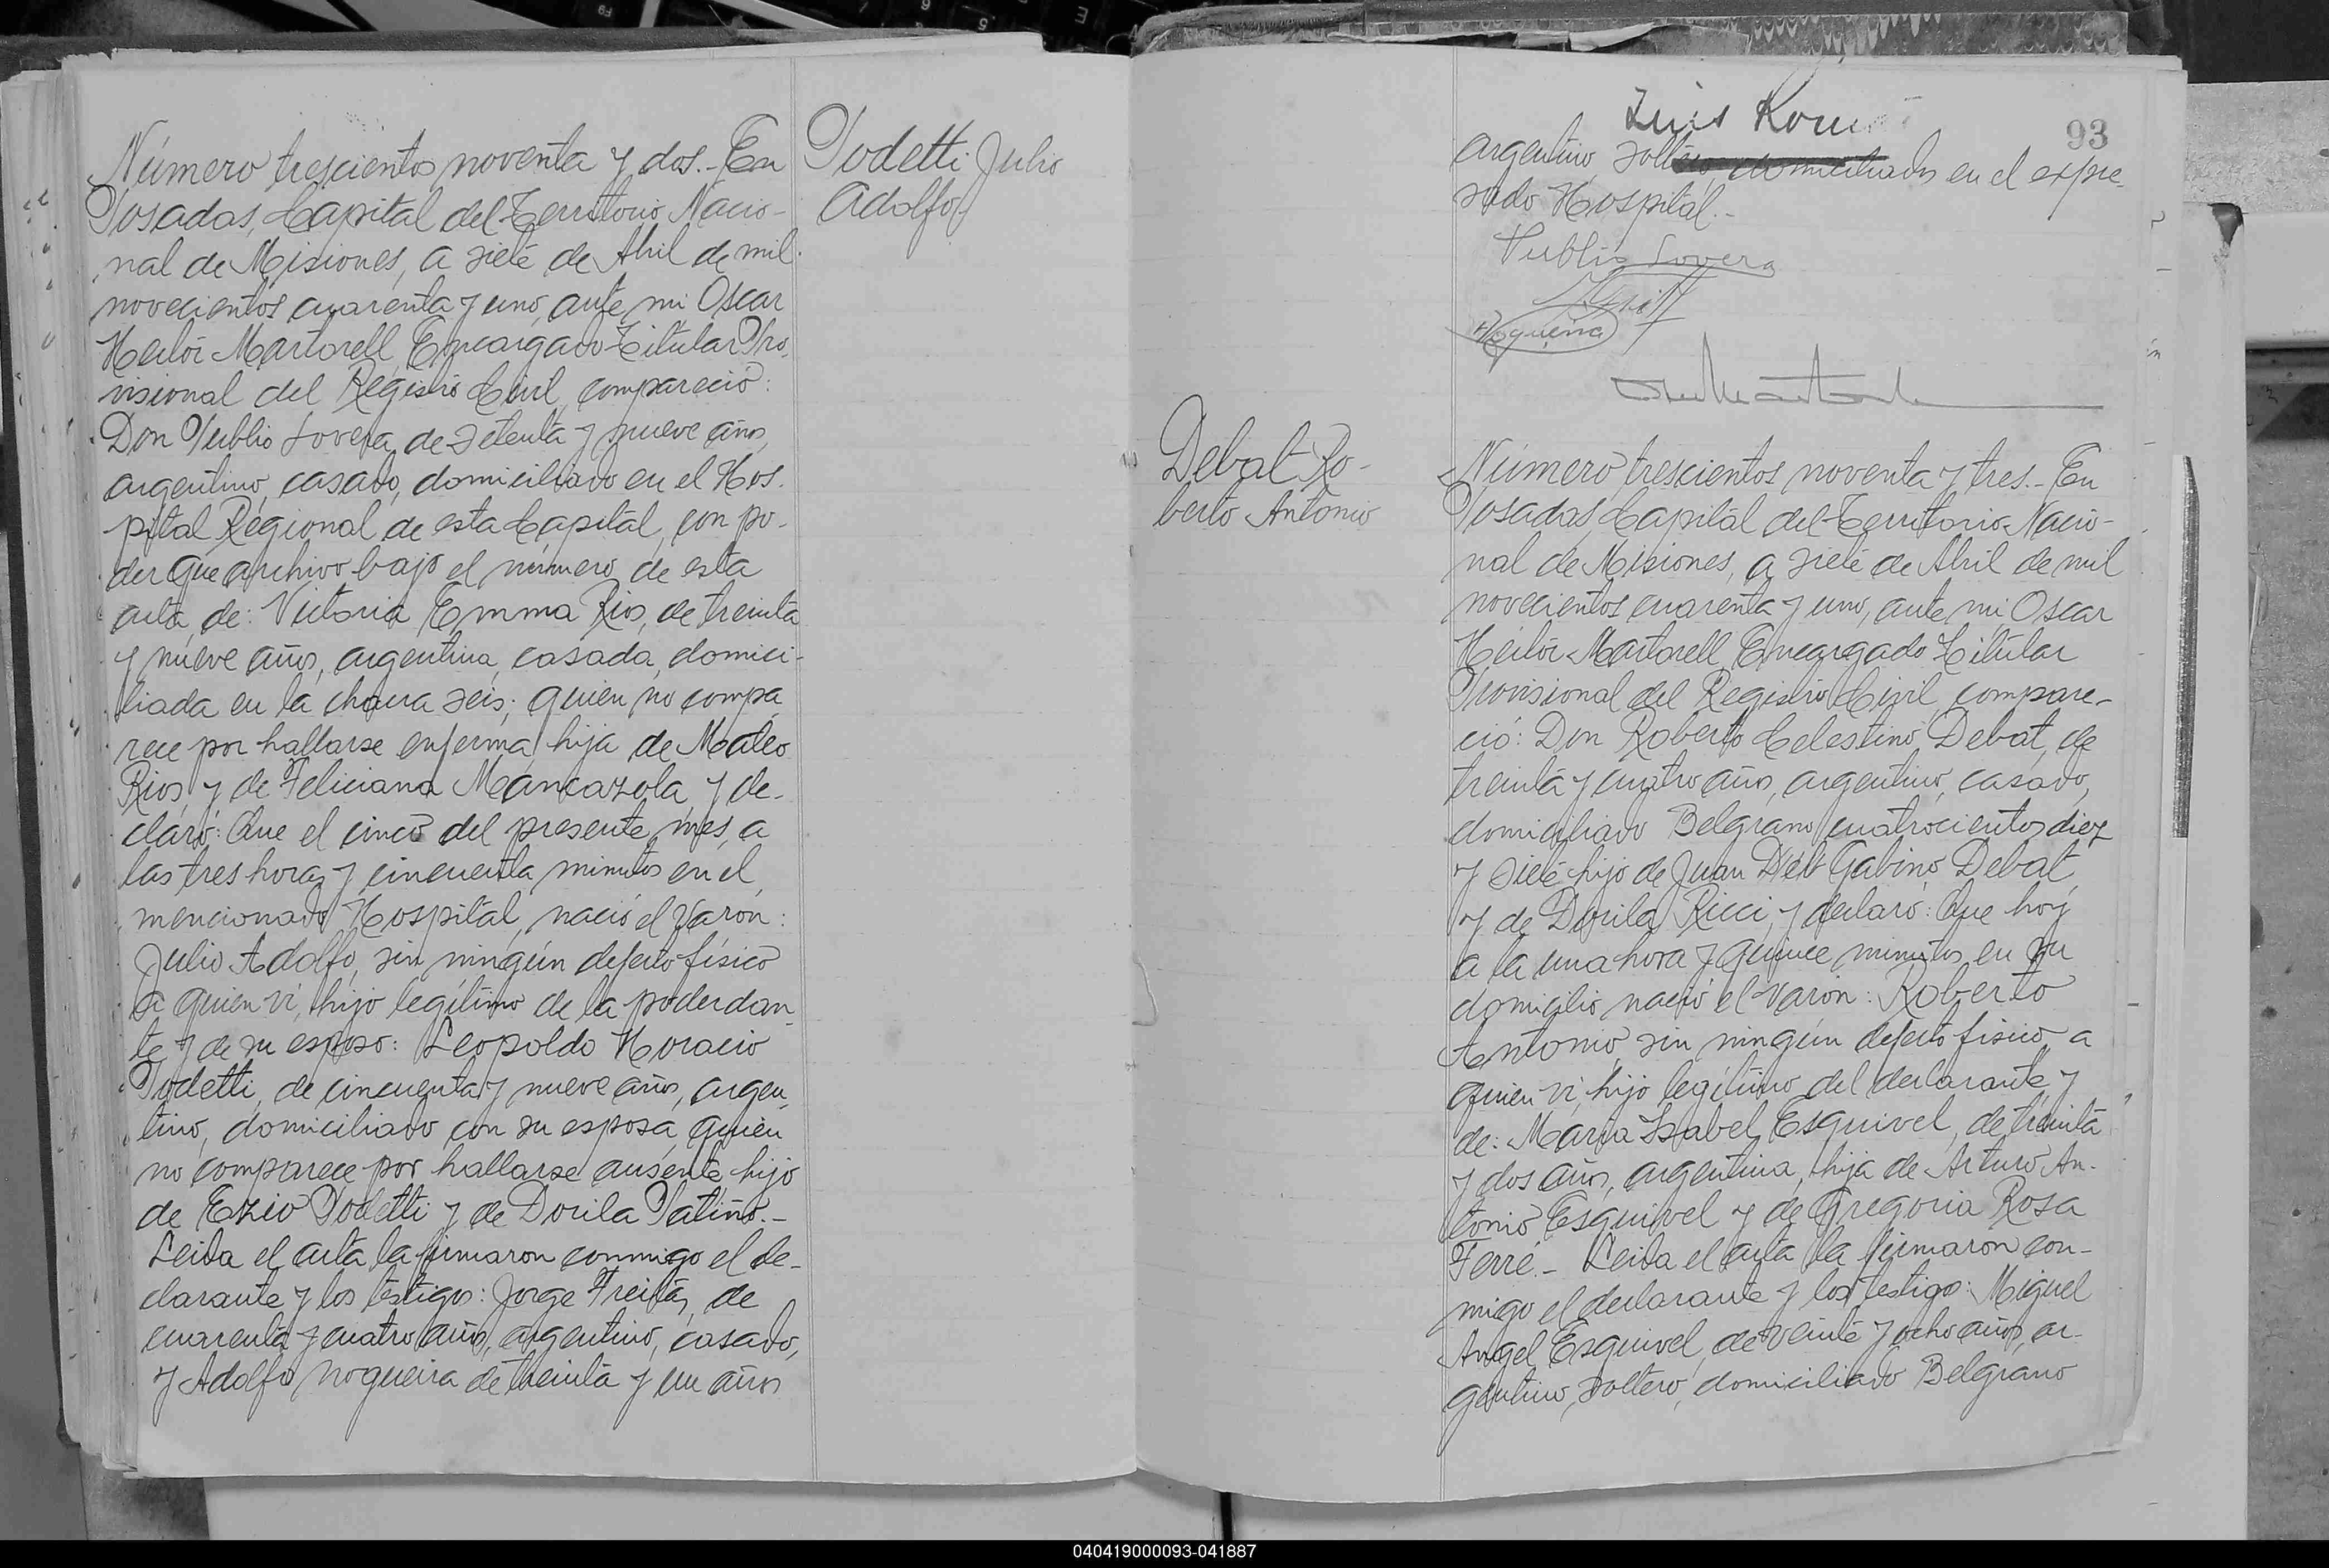 Número trescientos noventa y dos.- En
Posadas, Capital del Territorio Nacio-
nal de Misiones, a siete de Abril de mil
novecientos cuarenta y uno, ante mi Oscar
Heitor Martorell, Encargado Titular Pro-
visional del Registro Civil, compareció:
Don Publio Lovera, de setenta y nueve años,
argentino, casado, domiciliado en el Hos-
pital Regional de esta Capital, con po-
der que archivo bajo el número de esta
acta, de: Victoria Emma Rios, de treinta
y nueve años, argentina, casada, domici-
liada en la chacra seis; quien no compa
rece por hallarse enferma, hija de Mateo
Rios y de Feliciana Mancazola, y de-
claró: Que el cinco del presente mes, a
las tres horas y cincuenta minutos en el
mencionado Hospital, nació el varón:
Julio Adolfo, sin ningún defecto físico
a quien vi, hijo legítimo de la poderdan-
te y de su esposo: Leopoldo Horacio
Podetti, de cincuenta y nueve años, argen-
tino, domiciliado con su esposa, quien
no comparece por hallarse ausente, hijo
de Ezio Podetti y de Dorila Patiño.-
Leida el acta la firmaron conmigo el de-
clarante y los testigos: Jorge Freitas, de
cuarenta y cuatro años, argentino, casado,
y Adolfo Nogueira de treinta y un años
Podetti Julio
Adolfo
Luis
93
argentino, soltero, domiciliados en el expre-
sado Hospital.-
Publio Lovera
Debat Ro-
berto Antonio
Número trescientos noventa y tres.- En
Posadas, Capital del Territorio Nacio-
nal de Misiones, a siete de Abril de mil
novecientos cuarenta y uno, ante mi Oscar
Heitor Martorell, Encargado Titular
Provisional del Registro Civil, compare-
ció: Don Roberto Celestino Debat, de
treinta y cuatro años, argentino, casado,
domiciliado Belgrano cuatrocientos diez
y siete hijo de Juan Gabino Debat,
y de Dorila Ricci, y declaró: Que hoy
a la una hora y quince minutos, en su
domicilio nació el varon: Roberto
Antonio, sin ningún defecto físico, a
quien vi, hijo legítimo del declarante, y
de: Maria Isabel Esquivel, de treinta
y dos años, argentina, hija de Arturo An-
tonio Esquivel y de Gregoria Rosa
Ferré.- Leida el acta la firmaron con-
migo el declarante y los testigos: Miguel
Angel Esquivel, de veinte y ocho años, ar-
gentino, soltero, domiciliado Belgrano
040419000093-041887